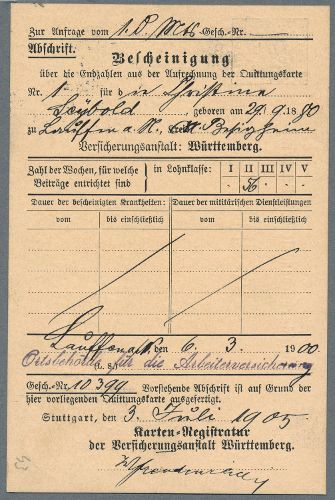 Zur Anfrage vom 1. d. Mts. Gesch.-Nr.
Abschrift.
Bescheinigung
über die Endzahlen aus der Aufrechnung der Quittungskarte
Nr. 1 für die Christine
Seybold geboren am 29. 9. 1880
zu Lauffen a. N., Besigheim
Versicherungsanstalt: Württemberg.
Zahl der Wochen, für welche Beiträge entrichtet sind
in Lohnklasse: I II III IV V
56
Dauer der bescheinigten Krankheiten: Dauer der militärischen Dienstleistungen
vom bis einschließlich vom bis einschließlich
Lauffen a/N. den 6. 3. 1900
Ortsbehörde für die Arbeiterversicherung
Gesch.-Nr. 10399 Vorstehende Abschrift ist auf Grund der
hier vorliegenden Quittungskarte ausgefertigt.
Stuttgart, den 3. Juli 1905
Karten-Registratur
der Versicherungsanstalt Württemberg.